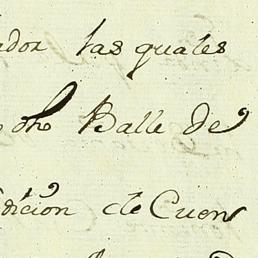 ador las quales
dho Balle de
dicion de Cuen